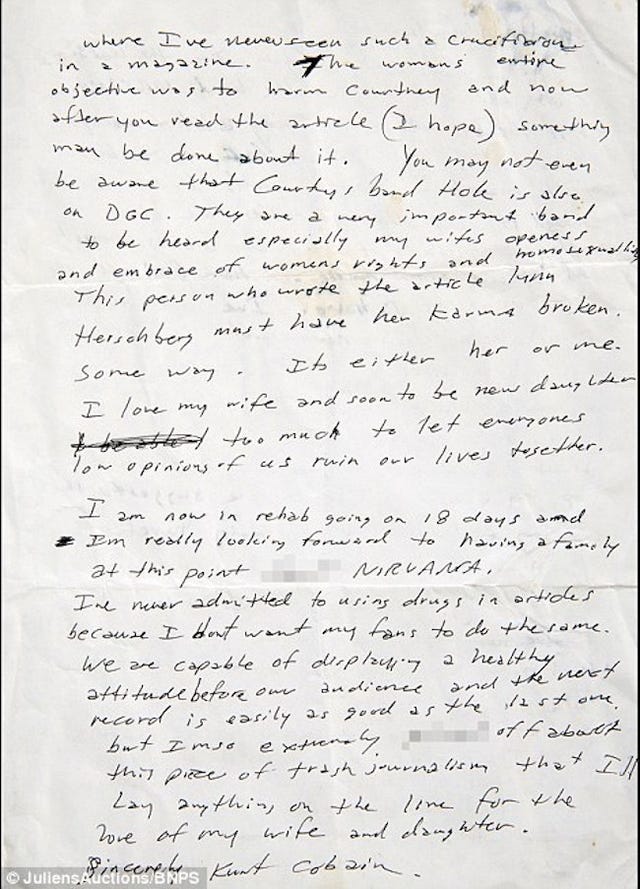 where I've never seen such a crucifixion
in a magazine. The womans entire
objective was to harm Courtney and now
after you read the article (I hope) something
may be done about it. You may not even
be aware that Courtneys band Hole is also
on DGC. They are a very important band
to be heard especially my wifes openess
and embrace of womens rights and homosexuality
This person who wrote the article Lynn
Herschberg must have her Karma broken.
Some way. Its either her or me.
I love my wife and soon to be new daughter
too much to let everyones
low opinions of us ruin our lives together.
I am now in rehab going on 18 days and
Im really looking forward to having a family
at this point NIRVANA.
Ive never admitted to using drugs in articles
because I dont want my fans to do the same.
We are capable of displaying a healthy
attitude before our audience and the next
record is easily as good as the last one.
but Im so extremely off about
this piece of trash journalism that I'll
Lay anything on the line for the
love of my wife and daughter.
Sincerely Kurt Cobain.
© JuliensAuctions/BNPS